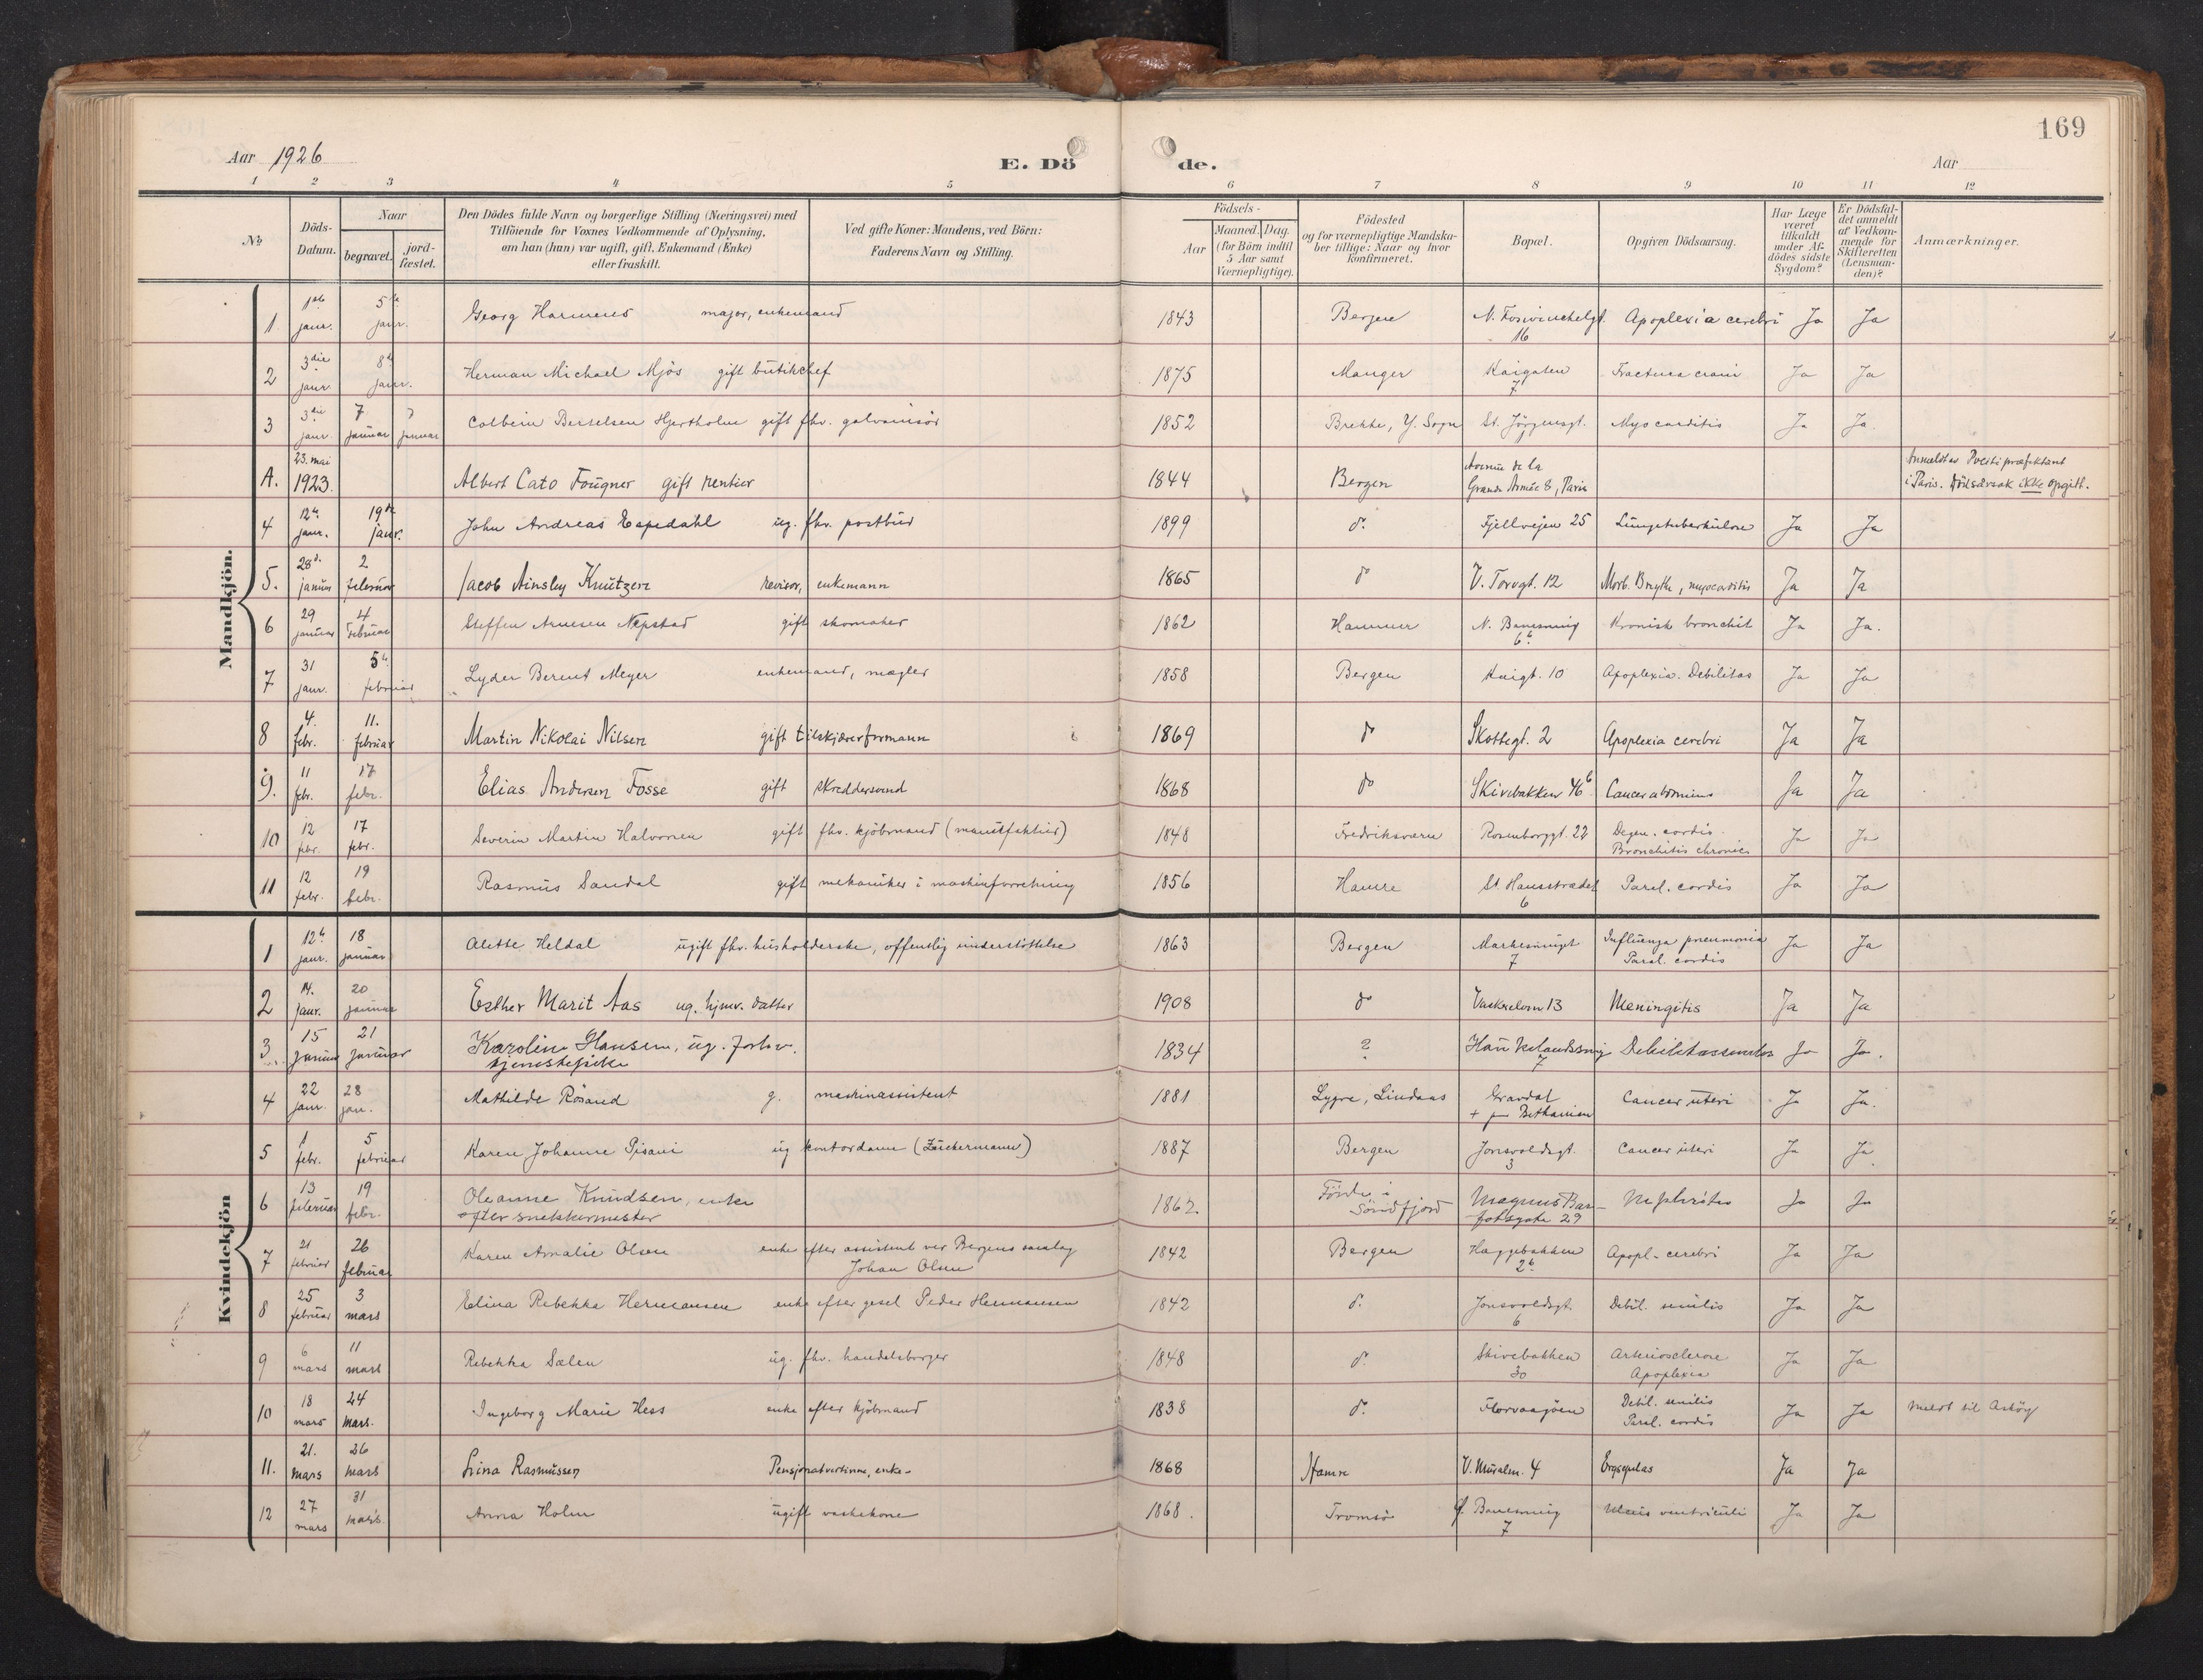 169
Aar 1926
E. Dö de.
Aar
1 2 3 4 5 6 7 8 9 10 11 12
No
Döds-Datum.
Naar
begravet.
jord-fæstet.
Den Dödes fulde Navn og borgerlige Stilling (Næringsvei) med
Tilföiende for Voxnes Vedkommende af Oplysning,
om han (hun) var ugift, gift, Enkemand (Enke)
eller fraskilt.
Ved gifte Koner: Mandens, ved Börn:
Faderens Navn og Stilling.
Födsels-
Aar
Maaned. Dag.
(for Börn indtil
5 Aar samt
Værnepligtige).
Födested
og for værnepligtige Mandska-
ber tillige: Naar og hvor
konfirmeret.
Bopæl.
Opgiven Dödsaarsag.
Har Læge
været
tilkaldt
under Af-
dödes sidste
Sygdom?
Er Dödsfal-
det anmeldt
af Vedkom-
mende for
Skifteretten
(Lensman-
den)?
Anmærkninger.
Mandkjön.
1 1ste janr. 5te janr. Georg Harmens major, enkemand 1843 Bergen 16 Apoplexia cerebri Ja Ja
2 3die janr. 8de janr. Herman Michael Mjös gift butikchef 1875 Manger Kaigaten 7 Fractura cranii Ja Ja
3 3die janr. 7 januar 7 januar Colbein Bertelsen Hjertholm gift fhv. galvanisör 1852 Brekke, Y. Sogn St. Jörgensgt. Myocarditis Ja Ja
A. 23. mai 1923. Albert Cato Fougner gift rentier 1844 Bergen Avenue de la Grande Armée 8, Paris Anmeldt av Politipræfekturet i Paris. Dödsårsak ikke opgitt.
4 12te janr. 19de janr. John Andreas Espedahl ug. fhv. postbud 1899 do. Fjellveien 25 Lungetuberkulose Ja Ja
5. 28de januar 2 februar Jacob Ainsley Knutzen revisor, enkemann 1865 do V. Torvgt. 12 Morb. Brigthi, myocarditis Ja Ja
6 29 januar 4 Februar Steffen Arnesen Nepstad gift skomaker 1862 Hammer N. Banesmug 6b Kronisk bronchit Ja Ja.
7 31 janr. 5te februar Lyder Berent Meyer enkemand, mægler 1858 Bergen Kaigt. 10 Apoplexia. Debilitas Ja Ja
8 4. febr. 11. februar Martin Nikolai Nilsen gift tilskjærerformann 1869 do Skottegt. 2 Apoplexia cerebri Ja Ja
9. 11 febr. 17 febr. Elias Andersen Fosse gift skreddersvend 1868 do Skivebakken 46b Cancer abdominis Ja Ja
10 12 febr. 17 febr. Severin Martin Halvorsen gift fhv. kjöbmand (manufaktur) 1848 Fredriksværn Rosenborggt. 22 Degen. cordis. Bronchitis chronica Ja Ja
11 12 febr. 19 febr. Rasmus Sandal gift mekaniker i maskinforretning 1856 Hamre St. Hansstrædet 6 Paral. cordis Ja Ja
Kvindekjön
1 12te janr. 18 januar Alette Heldal ugift fhv. husholderske, offentlig understöttelse 1863 Bergen 7 Influenza pneumonia Paral. cordis Ja Ja
2 14. janr. 20 januar Esther Marit Aas ug. hjmv. datter 1908 do Vaskerelven 13 Meningitis Ja Ja
3 15 januar 21 januar Karoline Hansen, ug. forhv. tjenestepike 1834 ? Haukelandssmug 7 Debilitas senilis Ja Ja.
4 22 janr. 28 jan. Mathilde Rösand g. maskinassistent 1881 Lygre, Lindaas Gravdal + på Bethanien Cancer uteri Ja Ja.
5 1 febr. 5 februar Karen Johanne Pisani ug kontordame (Zuckermann) 1887 Bergen Jonsvoldsgt. 3 Cancer uteri Ja Ja
6 13 februar 19 febr. Oleanne Knudsen, enke efter snekkermester 1862. Förde i Söndfjord Magnus Bar-fotsgate 29 Nephritis Ja Ja
7 21 februar 26 februar Karen Amalie Olsen enke efter assistent ved Bergens samlag Johan Olsen 1842 Bergen Heggebakken 2b Apopl. cerebri Ja Ja
8 25 februar 3 mars Elina Rebekka Hermansen enke efter gesel Peder Hermansen 1842 do. Jonsvoldsgt. 6 Debil. senilis Ja Ja
9 6 mars 11 mars Rebekka Sælen ug. fhv. handelsborger 1848 do. Skivebakken 30 Arteriosclerose Apoplexia Ja Ja
10 18 mars 24 Mars. Ingeborg Marie Hess enke efter kjöbmand 1838 do. Florvaagöen Debil. senilis Paral. cordis Ja Ja Meldt til Asköy
11. 21. Mars 26 Mars Lina Rasmussen Pensjonatvertinne, enke 1868 Hamre V. Muralm. 4 Erysipelas Ja Ja
12 27 mars 31 mars. Anna Holm ugift vaskekone 1868. Tromsö Ø. Banesmug 7 Ulcus ventriculi Ja Ja